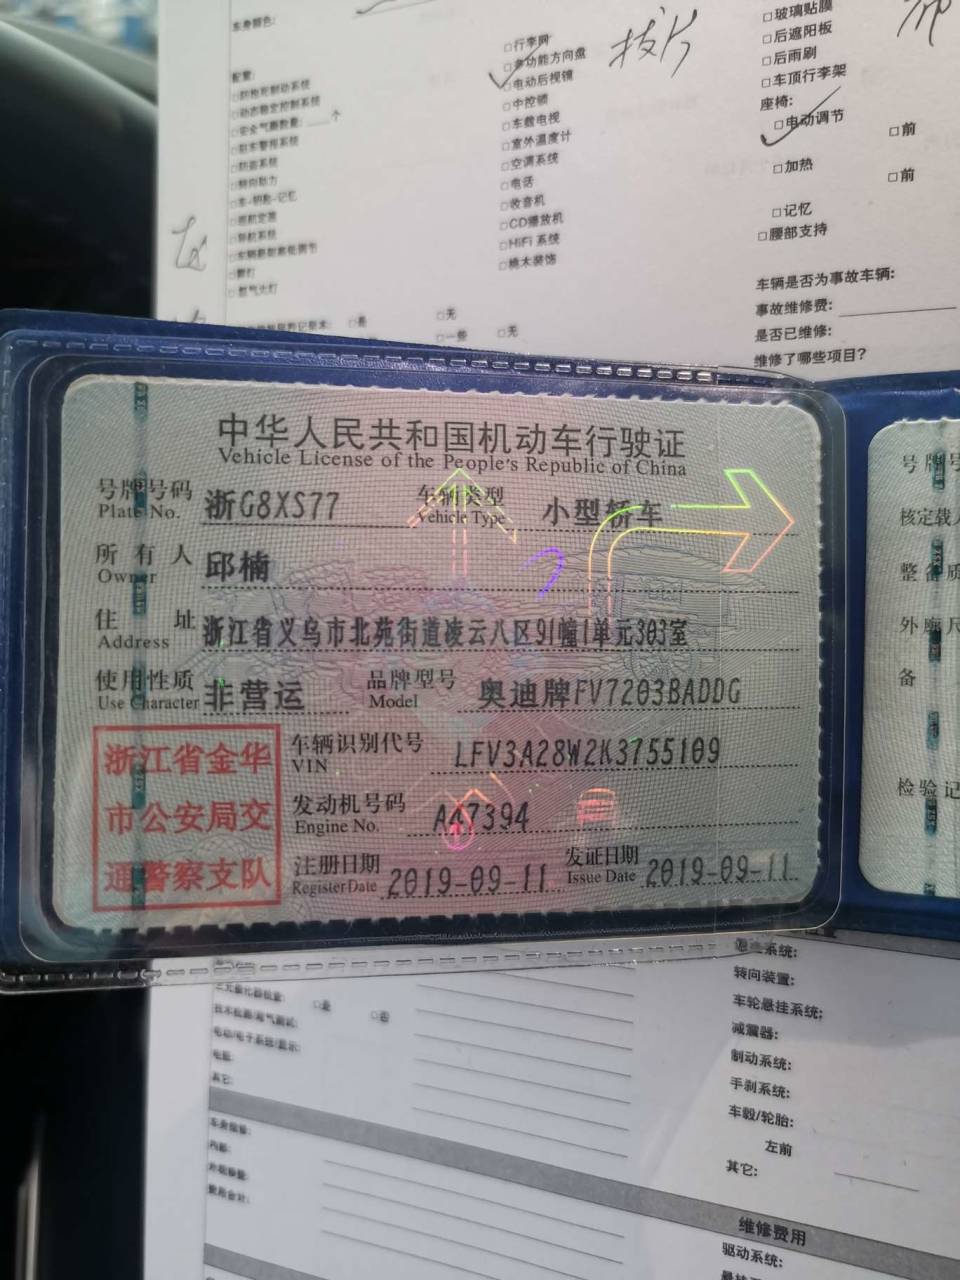 车身颜色:
配置:
□防抱死制动系统
□动态稳定控制系统
□安全气囊数量: 个
□驻车警报系统
□防盗系统
□转向助力
□导航系统
□行李网
□多功能方向盘
□电动后视镜
□中控锁
□车载电视
□室外温度计
□空调系统
□电话
□收音机
□CD播放机
□HiFi 系统
□桃木装饰
拔片
□玻璃贴膜
□后遮阳板
□后雨刷
□车顶行李架
座椅:
□电动调节
□前
□加热
□前
□记忆
□腰部支持
□是
□无
□一些
□无
车辆是否为事故车辆:
事故维修费:
是否已维修:
维修了哪些项目?
中华人民共和国机动车行驶证
Vehicle License of the People's Republic of China
号牌号码 浙G8XS77 车辆类型 小型轿车
Plate No. Vehicle Type
所有人 邱楠
Owner
住址 浙江省义乌市北苑街道凌云八区91幢1单元303室
Address
使用性质 非营运 品牌型号 奥迪牌FV7203BADDG
Use Character Model
浙江省金华
市公安局交
通警察支队
车辆识别代号 LFV3A28W2K3755109
VIN
发动机号码 AA7394
Engine No.
注册日期 2019-09-11 发证日期 2019-09-11
Register Date Issue Date
号牌号
核定载人
整备质
外廓尺
备
检验记
转向装置:
车轮悬挂系统:
减震器:
制动系统:
手刹系统:
车毂/轮胎:
左前
其它:
□是
□否
电瓶:
其它:
内部:
维修费用
驱动系统: